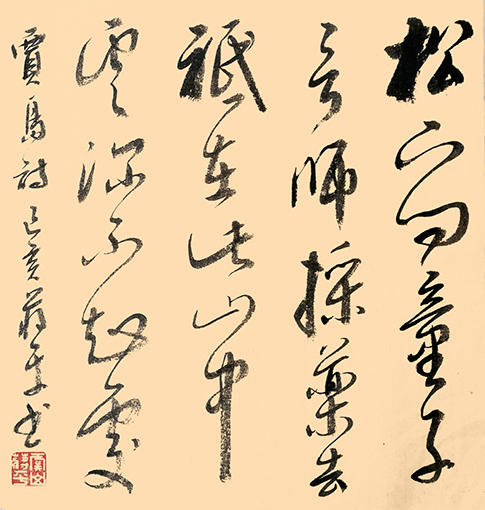 松下問童子
言師採藥去
祇在此山中
雲深不知處
賈島詩己亥書